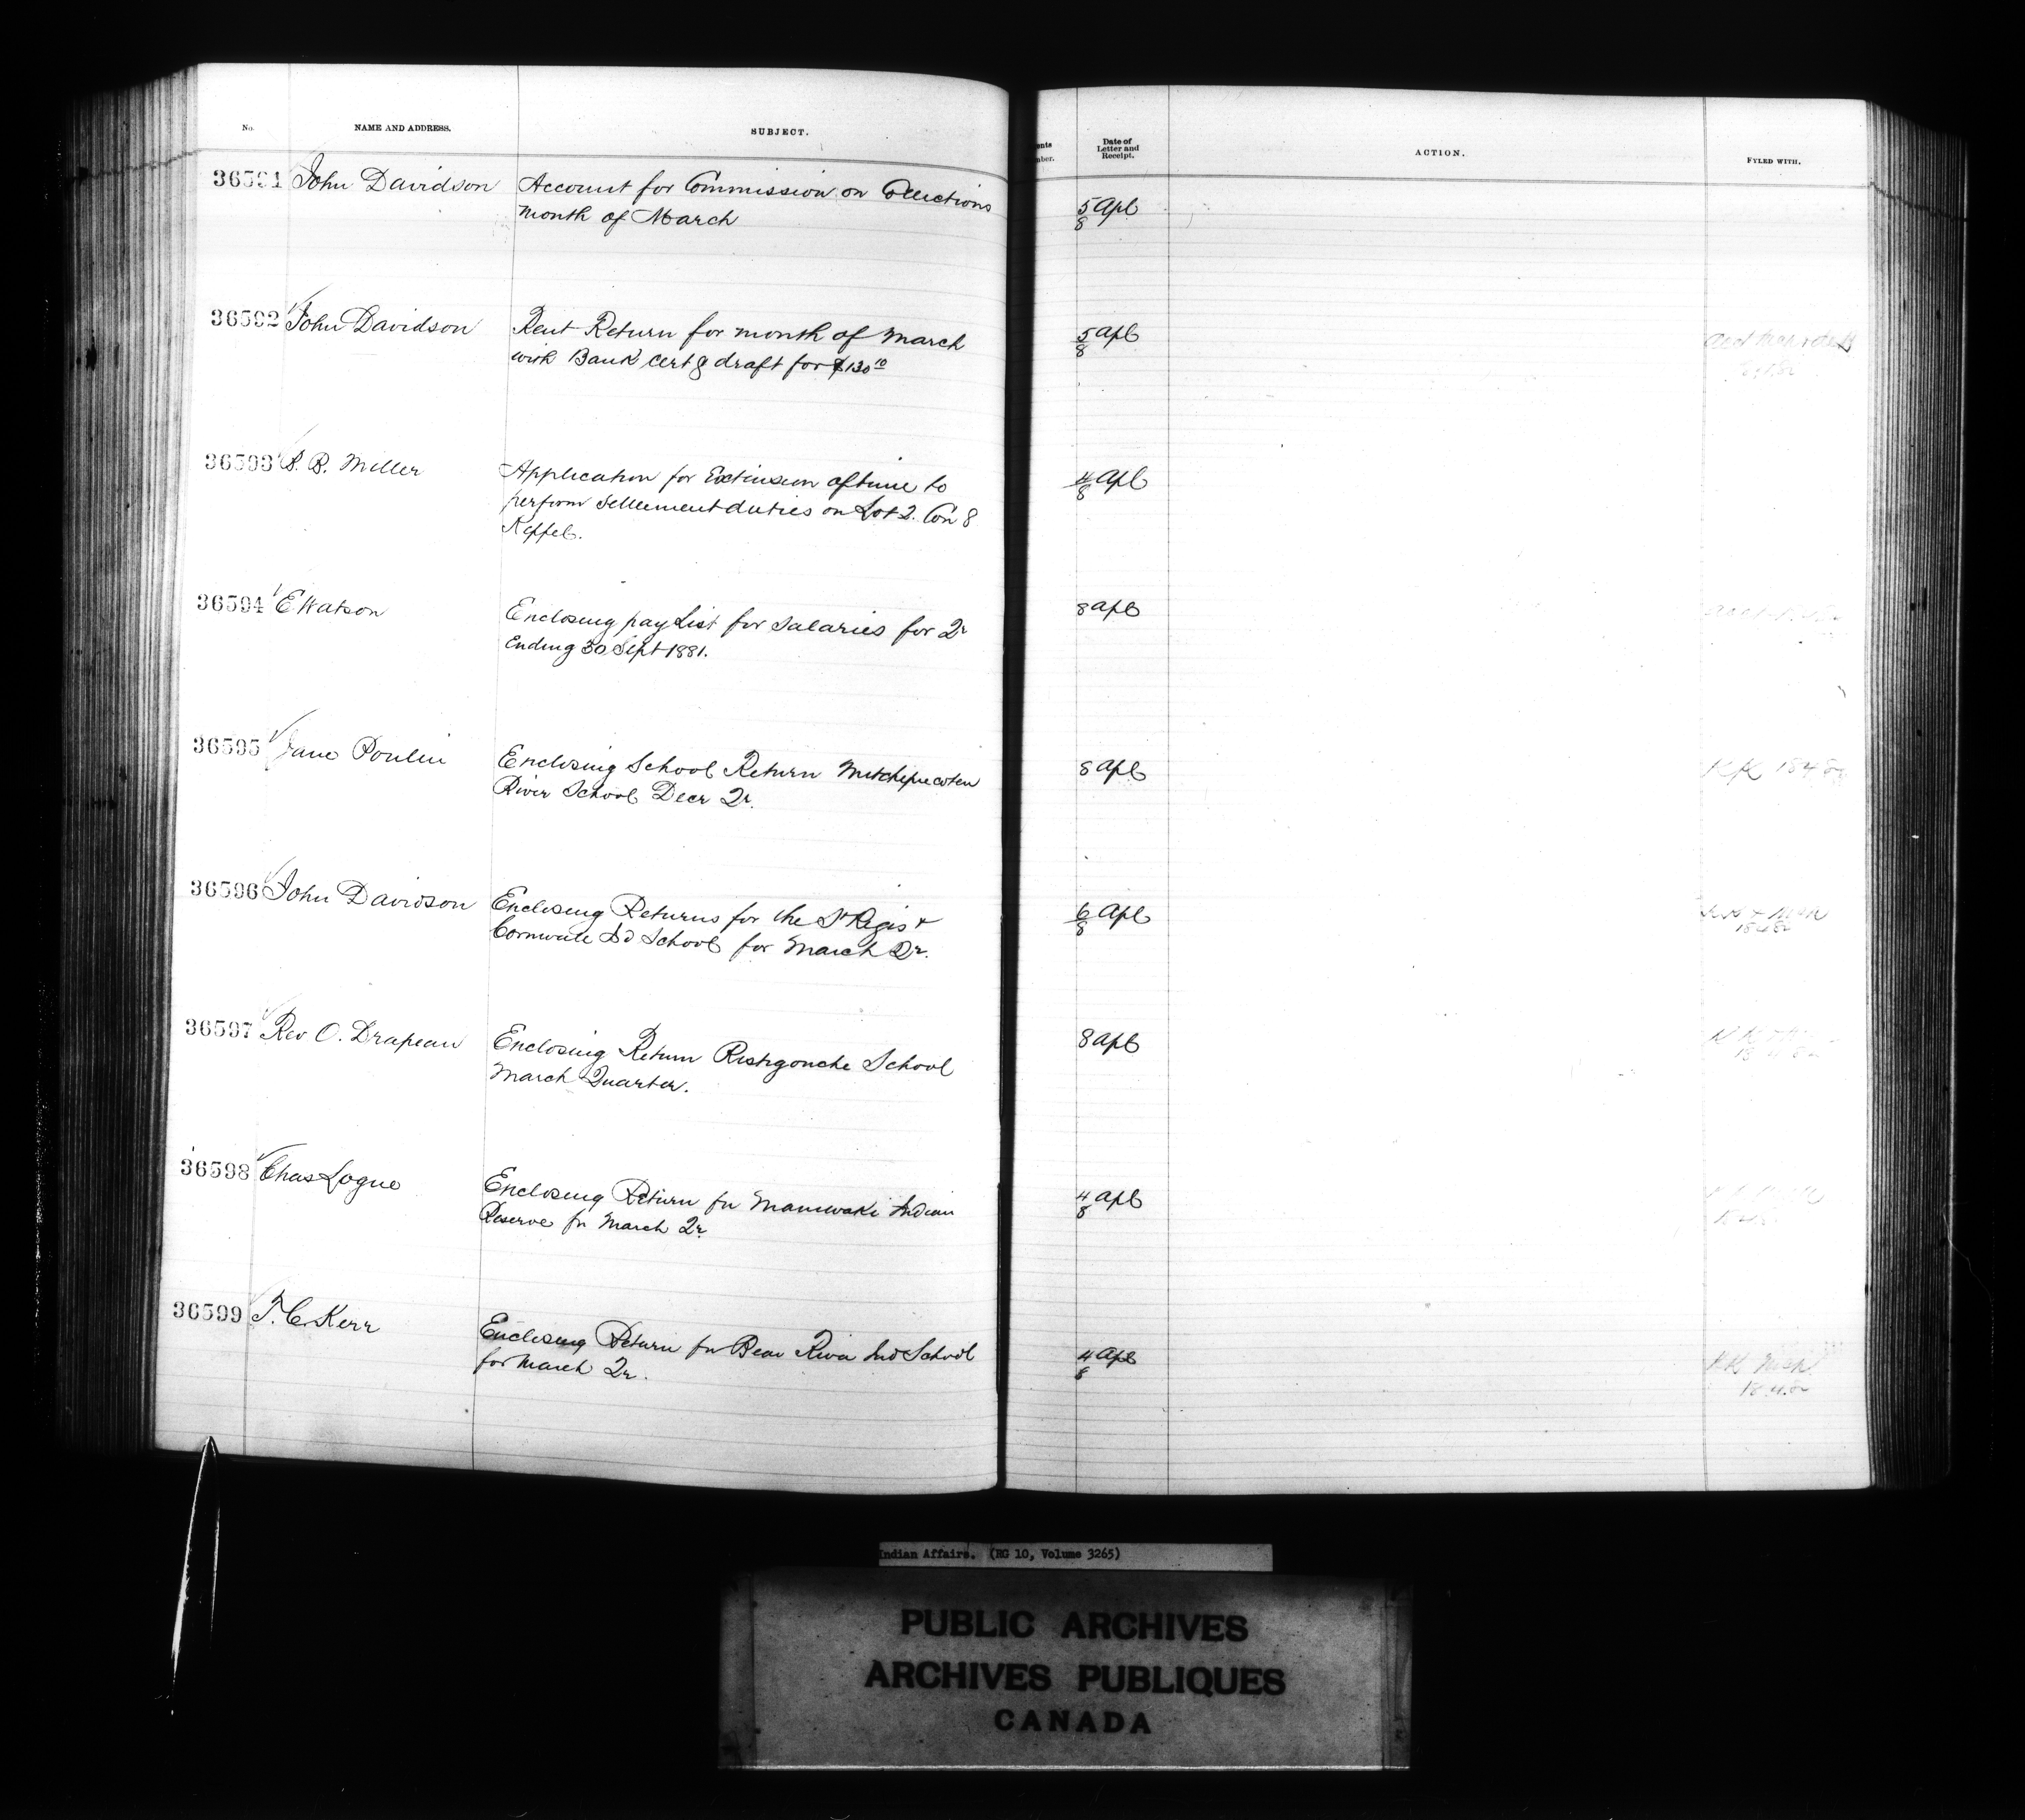 No. NAME AND ADDRESS. SUBJECT. Date of Letter and Receipt. ACTION. FYLED WITH.
36591 John Davidson Account for Commission on Collections 5 Apl
month of March 8
36592 John Davidson Rent Return for month of March 5 Apl
with Bank Cert & draft for $130 10 8
36593 S. B. Miller Application for Extension of time to 4 Apl
perform Settlement duties on Lot 2. Con 8 8
Keppel.
36594 E Watson Enclosing pay List for Salaries for Qr 8 Apl
Ending 30 Sept 1881.
36595 Jane Poulin Enclosing School Return Mitchipicoten 8 Apl
River School Decr Qr.
36596 John Davidson Enclosing Returns for the St Regis + 6 Apl
Cornwall Isd School for March Qr. 8
36597 Rev O. Drapeau Enclosing Return Restigouche School 8 Apl
March Quarter.
36598 Chas Logue Enclosing Return for Maniwaki Indian 4 Apl
Reserve for March Qr. 8
36599 T. C. Kerr Enclosing Return for Bear River Ind School 4 Apl
for March Qr. 8
Indian Affairs. (RG 10, Volume 3265)
PUBLIC ARCHIVES
ARCHIVES PUBLIQUES
CANADA